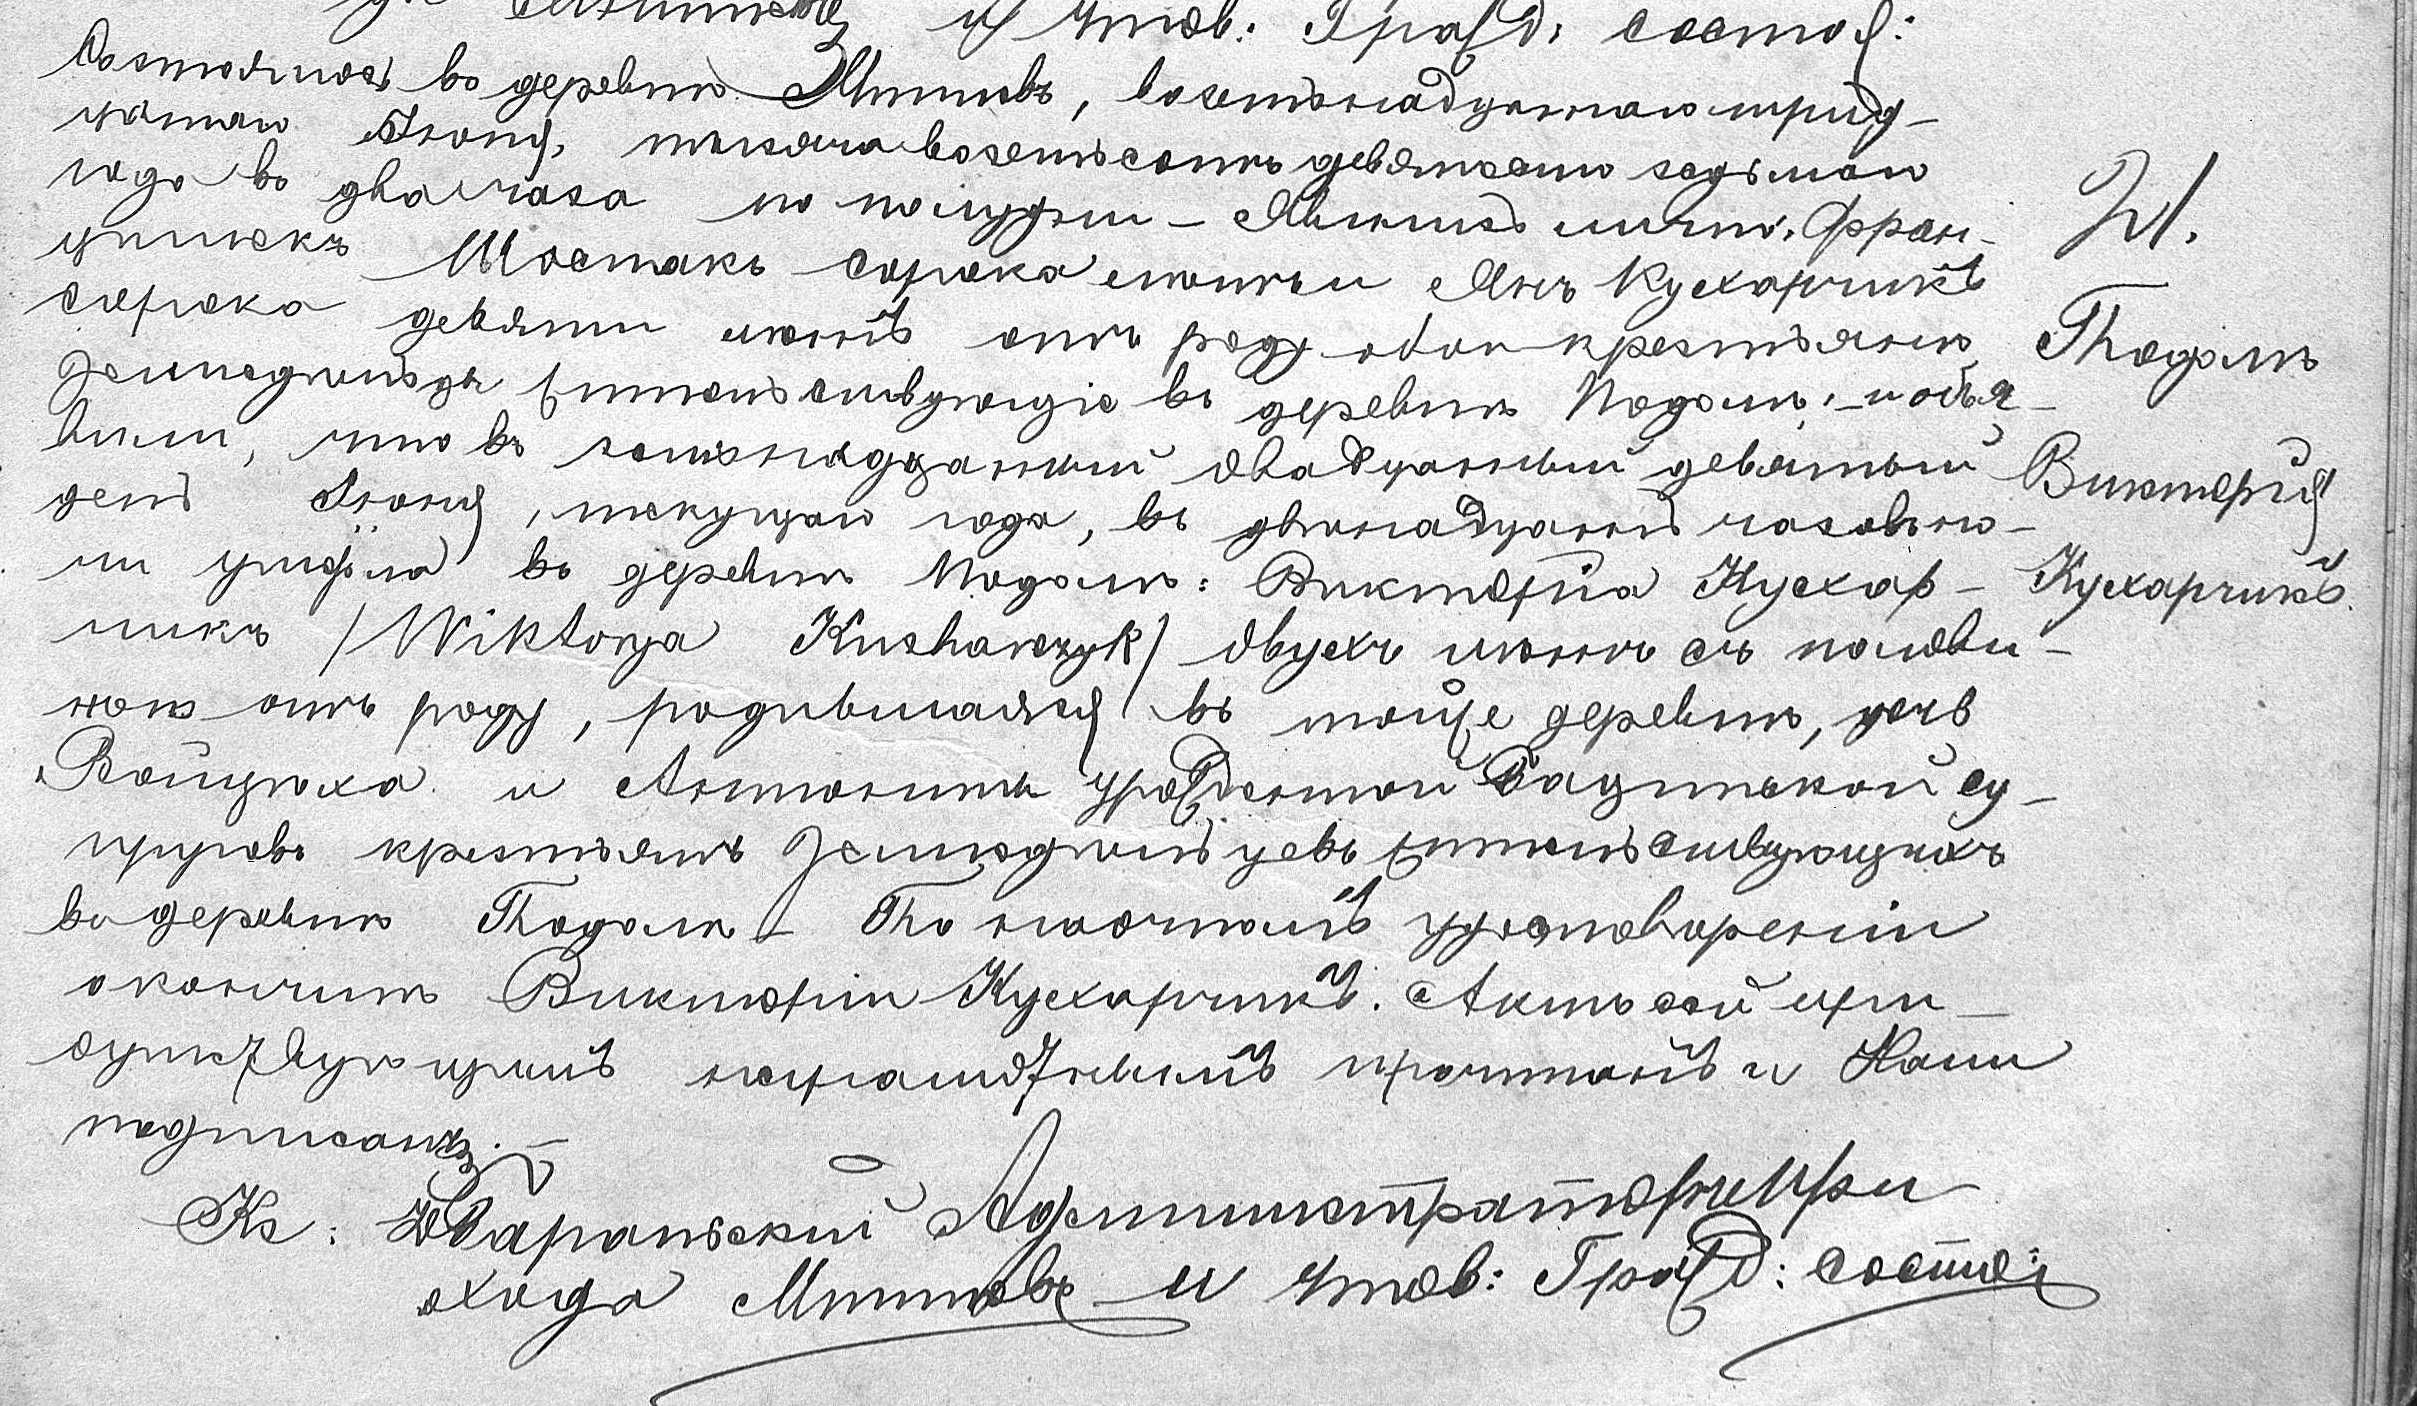 и Чтов: Гражд: состоя:
Состоялось въ деревни Мнишевъ, восемьнадцатаго трид-
цатаго Іюня, тысяча восемьсотъ девяносто седьмаго
года въ два часа по полудни – Явились лично, Фран-
цишекъ Шостакъ сорока Янъ Кухарчикъ
сорока девяти лѣтъ отъ роду оба крестьяне
земледѣльцы жительствующіе въ деревни Подоли, – и объя-
вили, что въ семьнадцатый двадцатый девятый
день Іюня, текущаго года, въ двѣнадцать часовъ но-
чи умерла въ деревни Подоли: Викторіа Кухар-
чикъ /Wiktorya Kucharczyk/ двухъ лѣтъ съ полови-
ною отъ роду, родившаяся въ тойже деревни, дочь
Войцеха и Антонины урожденной су-
пруговъ крестьянъ земледѣльцевъ жительствующихъ
въ деревни Подоли – По наочномъ удостовѣреніи
о кончинѣ Викторіи Кухарчикъ. Актъ сей при-
сутствующимъ неграмотнымъ прочитанъ и Нами
подписанъ. –
Кс: Администраторъ При-
хода Мнишевъ и Чтов: Гражд: состоя:
31.
Подоль
Викторія
Кухарчикъ.